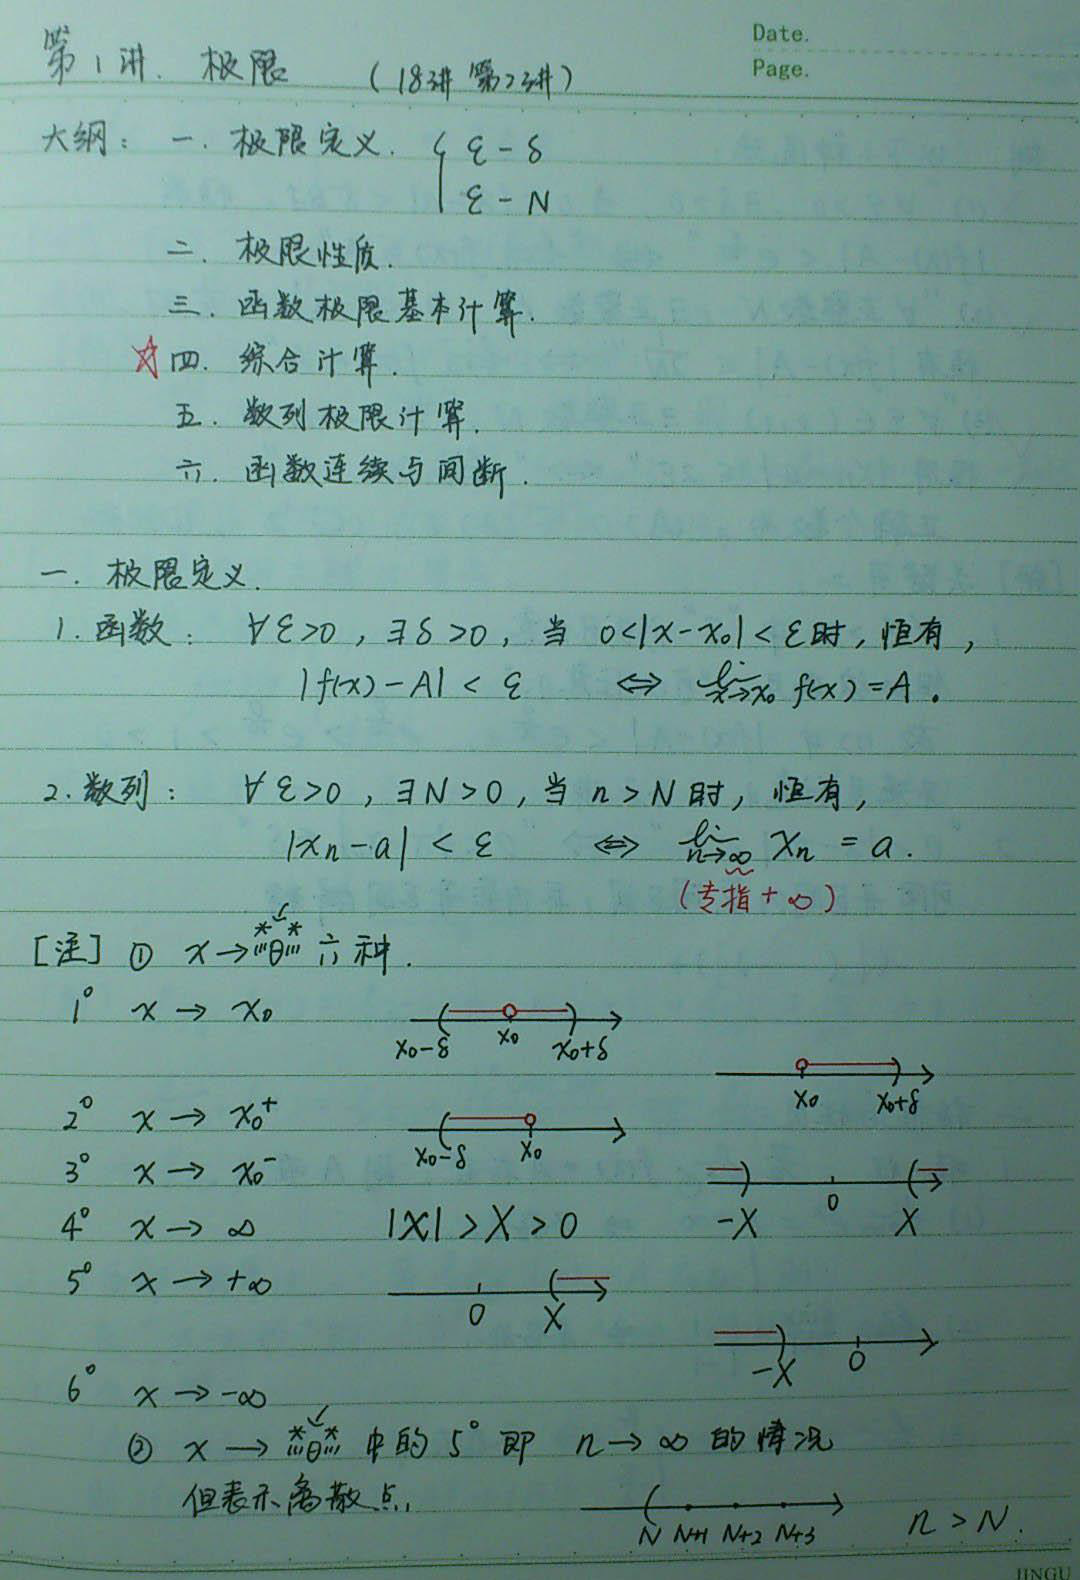 Date.
Page.
第1讲. 极限 (18讲 第2讲)
大纲: 一. 极限定义. { ε-δ
ε-N
二. 极限性质.
三. 函数极限基本计算.
☆ 四. 综合计算.
五. 数列极限计算.
六. 函数连续与间断.
一. 极限定义.
1. 函数: ∀ε>0, ∃δ>0, 当 0<|x-x₀|<ε时, 恒有,
|f(x)-A| < ε ⇔ lim x→x₀ f(x)=A.
2. 数列: ∀ε>0, ∃N>0, 当 n>N 时, 恒有,
|xn-a| < ε ⇔ lim n→∞ xn = a.
(专指+∞)
[注] ① x→ 六种.
1° x → x₀
x₀-δ x₀ x₀+δ
x₀ x₀+δ
2° x → x₀⁺
x₀-δ x₀
3° x → x₀⁻
-X 0 X
4° x → ∞ |x| > X > 0
5° x → +∞
0 X
-X 0
6° x → -∞
② x → 中的 5° 即 n→∞ 的情况
但表示离散点,
N N+1 N+2 N+3 n > N.
JINGU